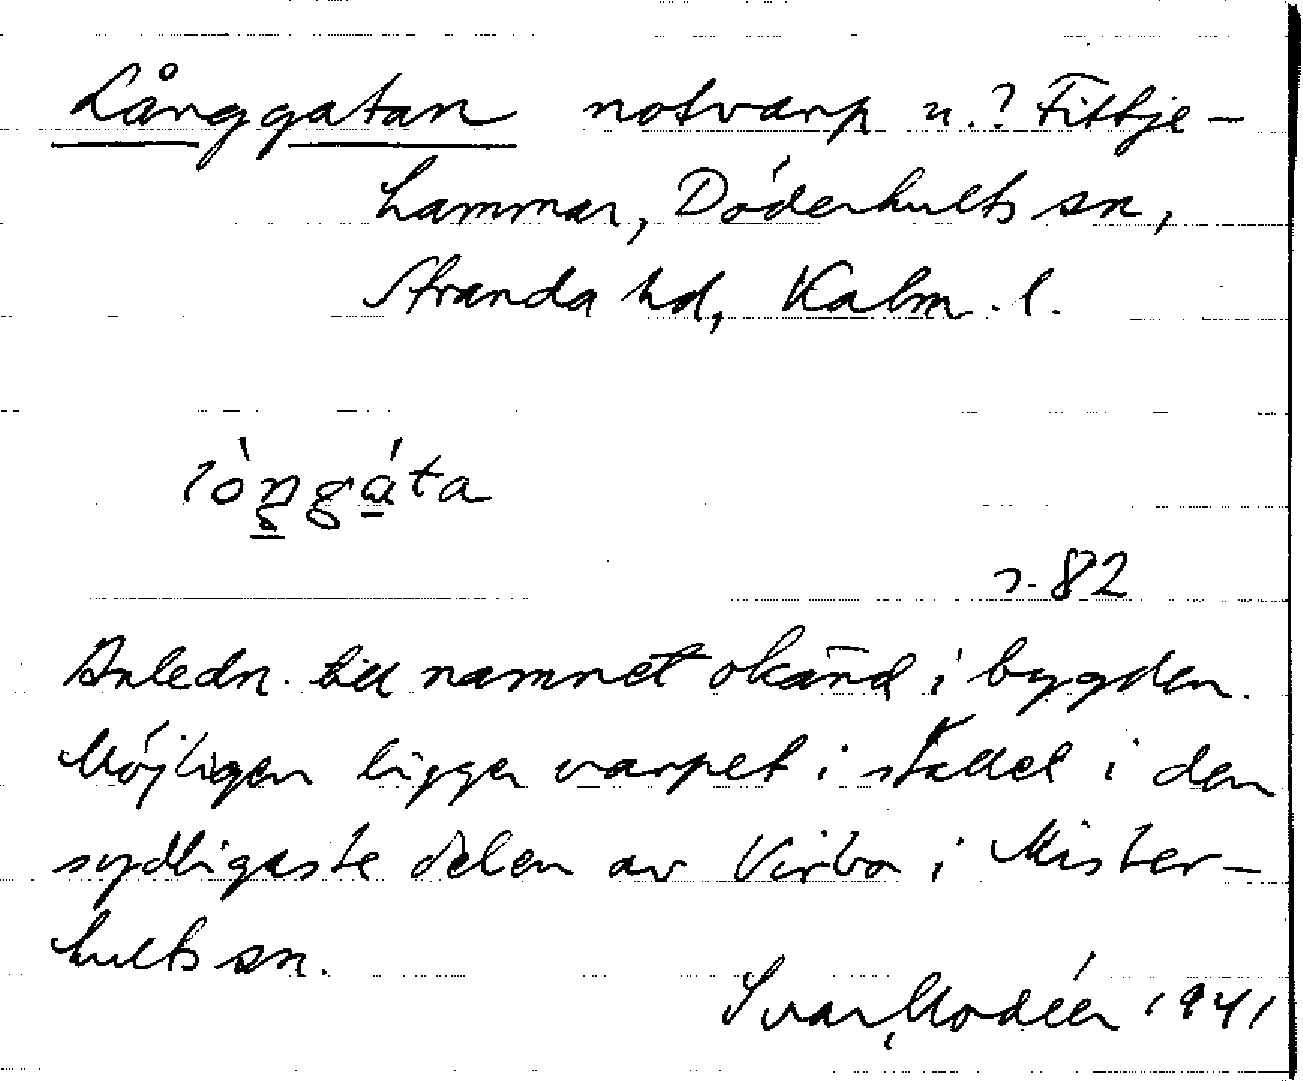 Långgatan notvarp u.? Fittje-
hammar, Döderhults sn,
Stranda hd, Kalm. l.
lòŋgáta
s. 82
Anledn. till namnet okänd i bygden.
Möjligen ligger varpet i stället i den
sydligaste delen av Virbo i Mister-
hults sn.
Ivar Modéer 1941